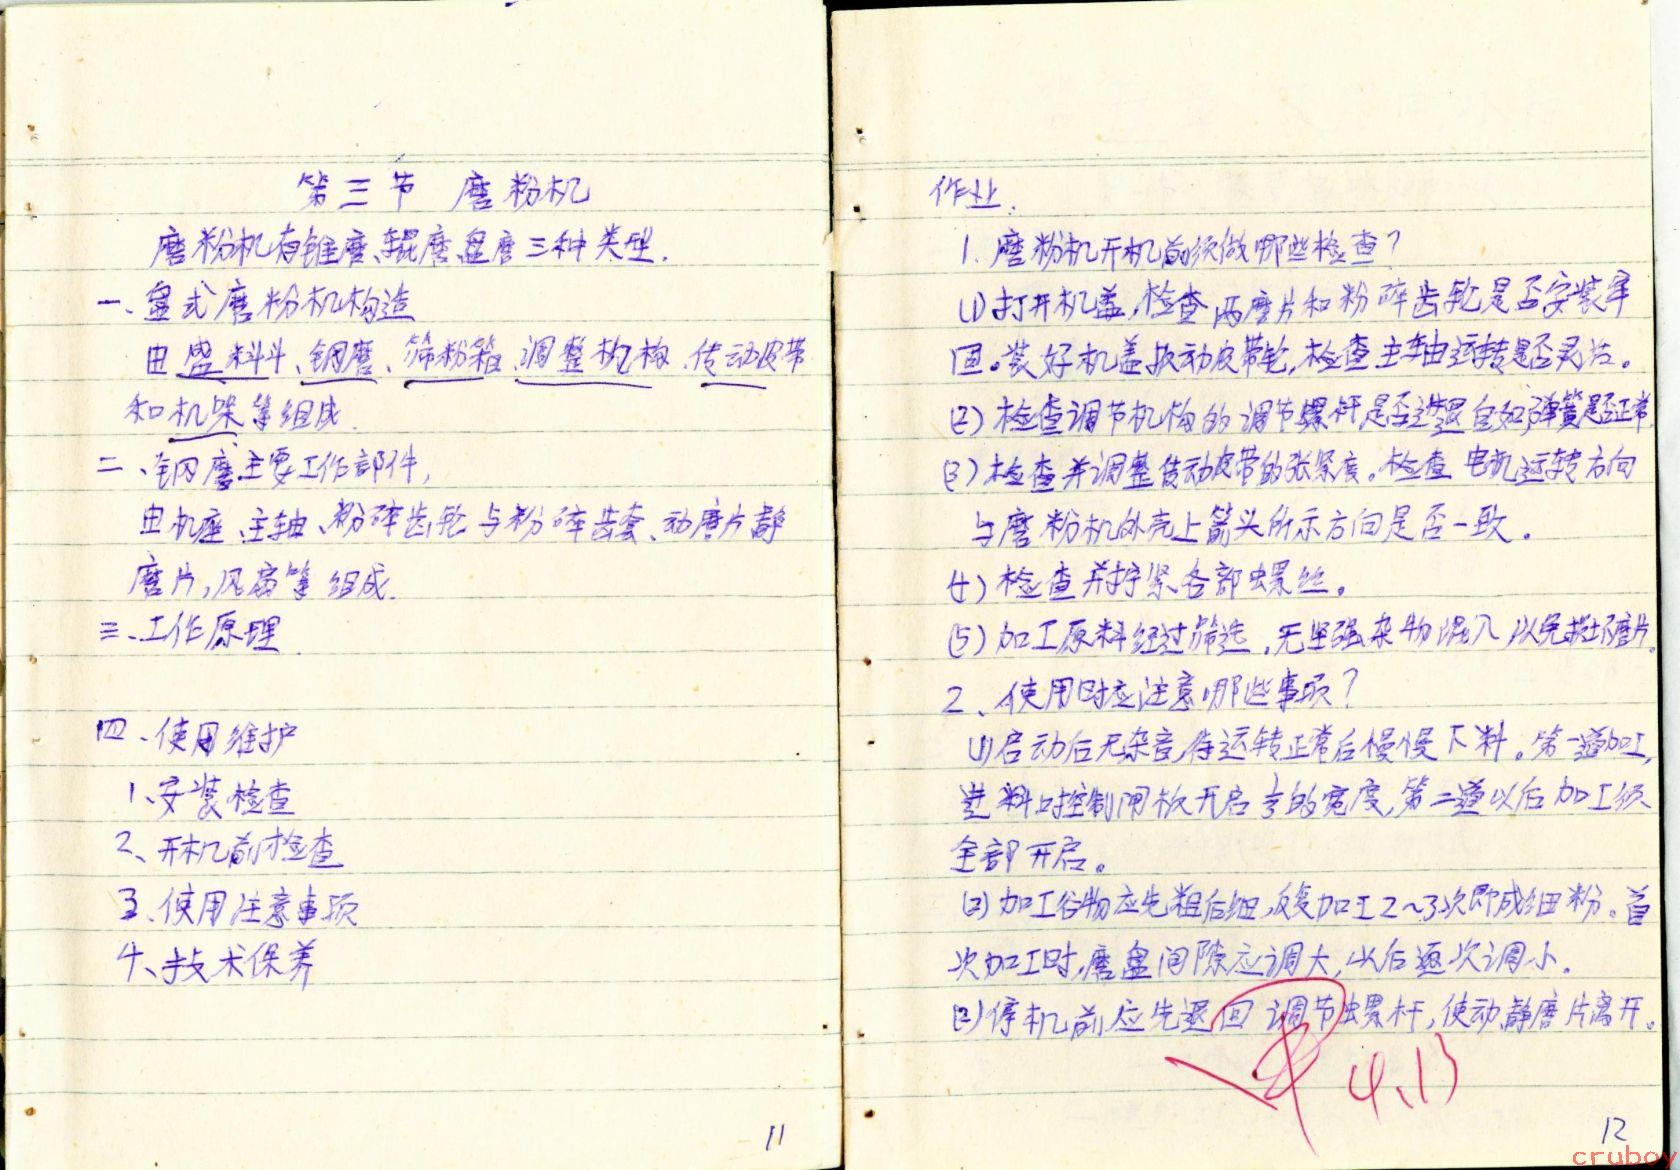 第三节 磨粉机
磨粉机有锥磨、辊磨、盘磨三种类型.
一、盘式磨粉机构造
由盛料斗、钢磨、筛粉箱、调整机构、传动皮带
和机架等组成.
二、钢磨主要工作部件,
由机座、主轴、粉碎齿轮与粉碎齿套、动磨片静
磨片,风扇等组成.
三、工作原理
四、使用维护
1、安装检查
2、开机前检查
3、使用注意事项
4、技术保养
11
作业.
1、磨粉机开机前须做哪些检查?
(1)打开机盖,检查两磨片和粉碎齿轮是否安装牢
固。装好机盖扳动皮带轮,检查主轴运转是否灵活。
(2)检查调节机构的调节螺杆是否进退自如,弹簧是否正常
(3)检查并调整传动皮带的张紧度。检查电机运转方向
与磨粉机外壳上箭头所示方向是否一致。
(4)检查并拧紧各部螺丝。
(5)加工原料经过筛选,无坚强杂物混入以免损坏磨片.
2、使用时应注意哪些事项?
(1)启动后无杂音,待运转正常后慢慢下料。第一道加工,
进料时控制闸板开启 的宽度,第二道以后加工须
全部开启。
(2)加工谷物应先粗后细,反复加工2~3次即成细粉。首
次加工时,磨盘间隙应调大,以后逐次调小.
停机前应先退回调节螺杆,使动、静磨片离开。
4.13
12
cruboy